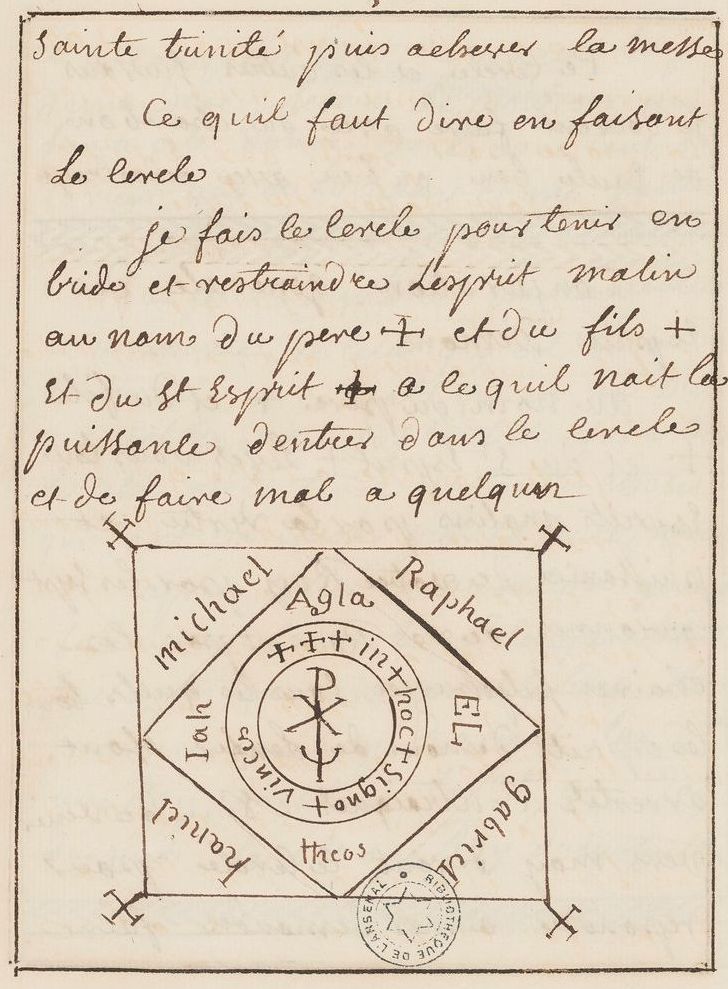 Sainte trinité puis achever la messe
Ce quil faut dire en faisant
Le cercle
je fais le cercle pour tenir en
bride et restraindre Lesprit malin
au nom du pere + et du fils +
Et du St Esprit + a ce quil nait la
puissance dentrer dans le cercle
et de faire mal a quelquun
michael
Raphael
Agla
+++ in+hoc+signo+vinces
Iah
EL
haniel
theos
gabriel
BIBLIOTHEQUE DE L'ARSENAL